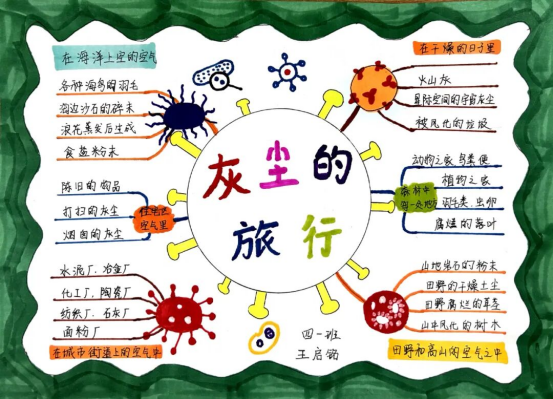 在海洋上空的空气
各种海鸟的羽毛
海边沙石的碎末
浪花蒸发后生成
食盐粉末
陈旧的物品
打扫的灰尘
烟囱的灰尘
住宅区
空气里
水泥厂、冶金厂
化工厂、陶瓷厂
纺织厂、石灰厂
面粉厂
在城市街道上的空气中
灰尘的
旅行
四一班
在干燥的日子里
火山灰
星际空间的宇宙灰尘
被风化的垃圾
动物之家 鸟粪便
植物之家
虫卵
腐烂的落叶
森林中
山地岩石的粉末
田野的干燥土尘
田野腐烂的草茎
山中风化的树木
田野和高山的空气之中